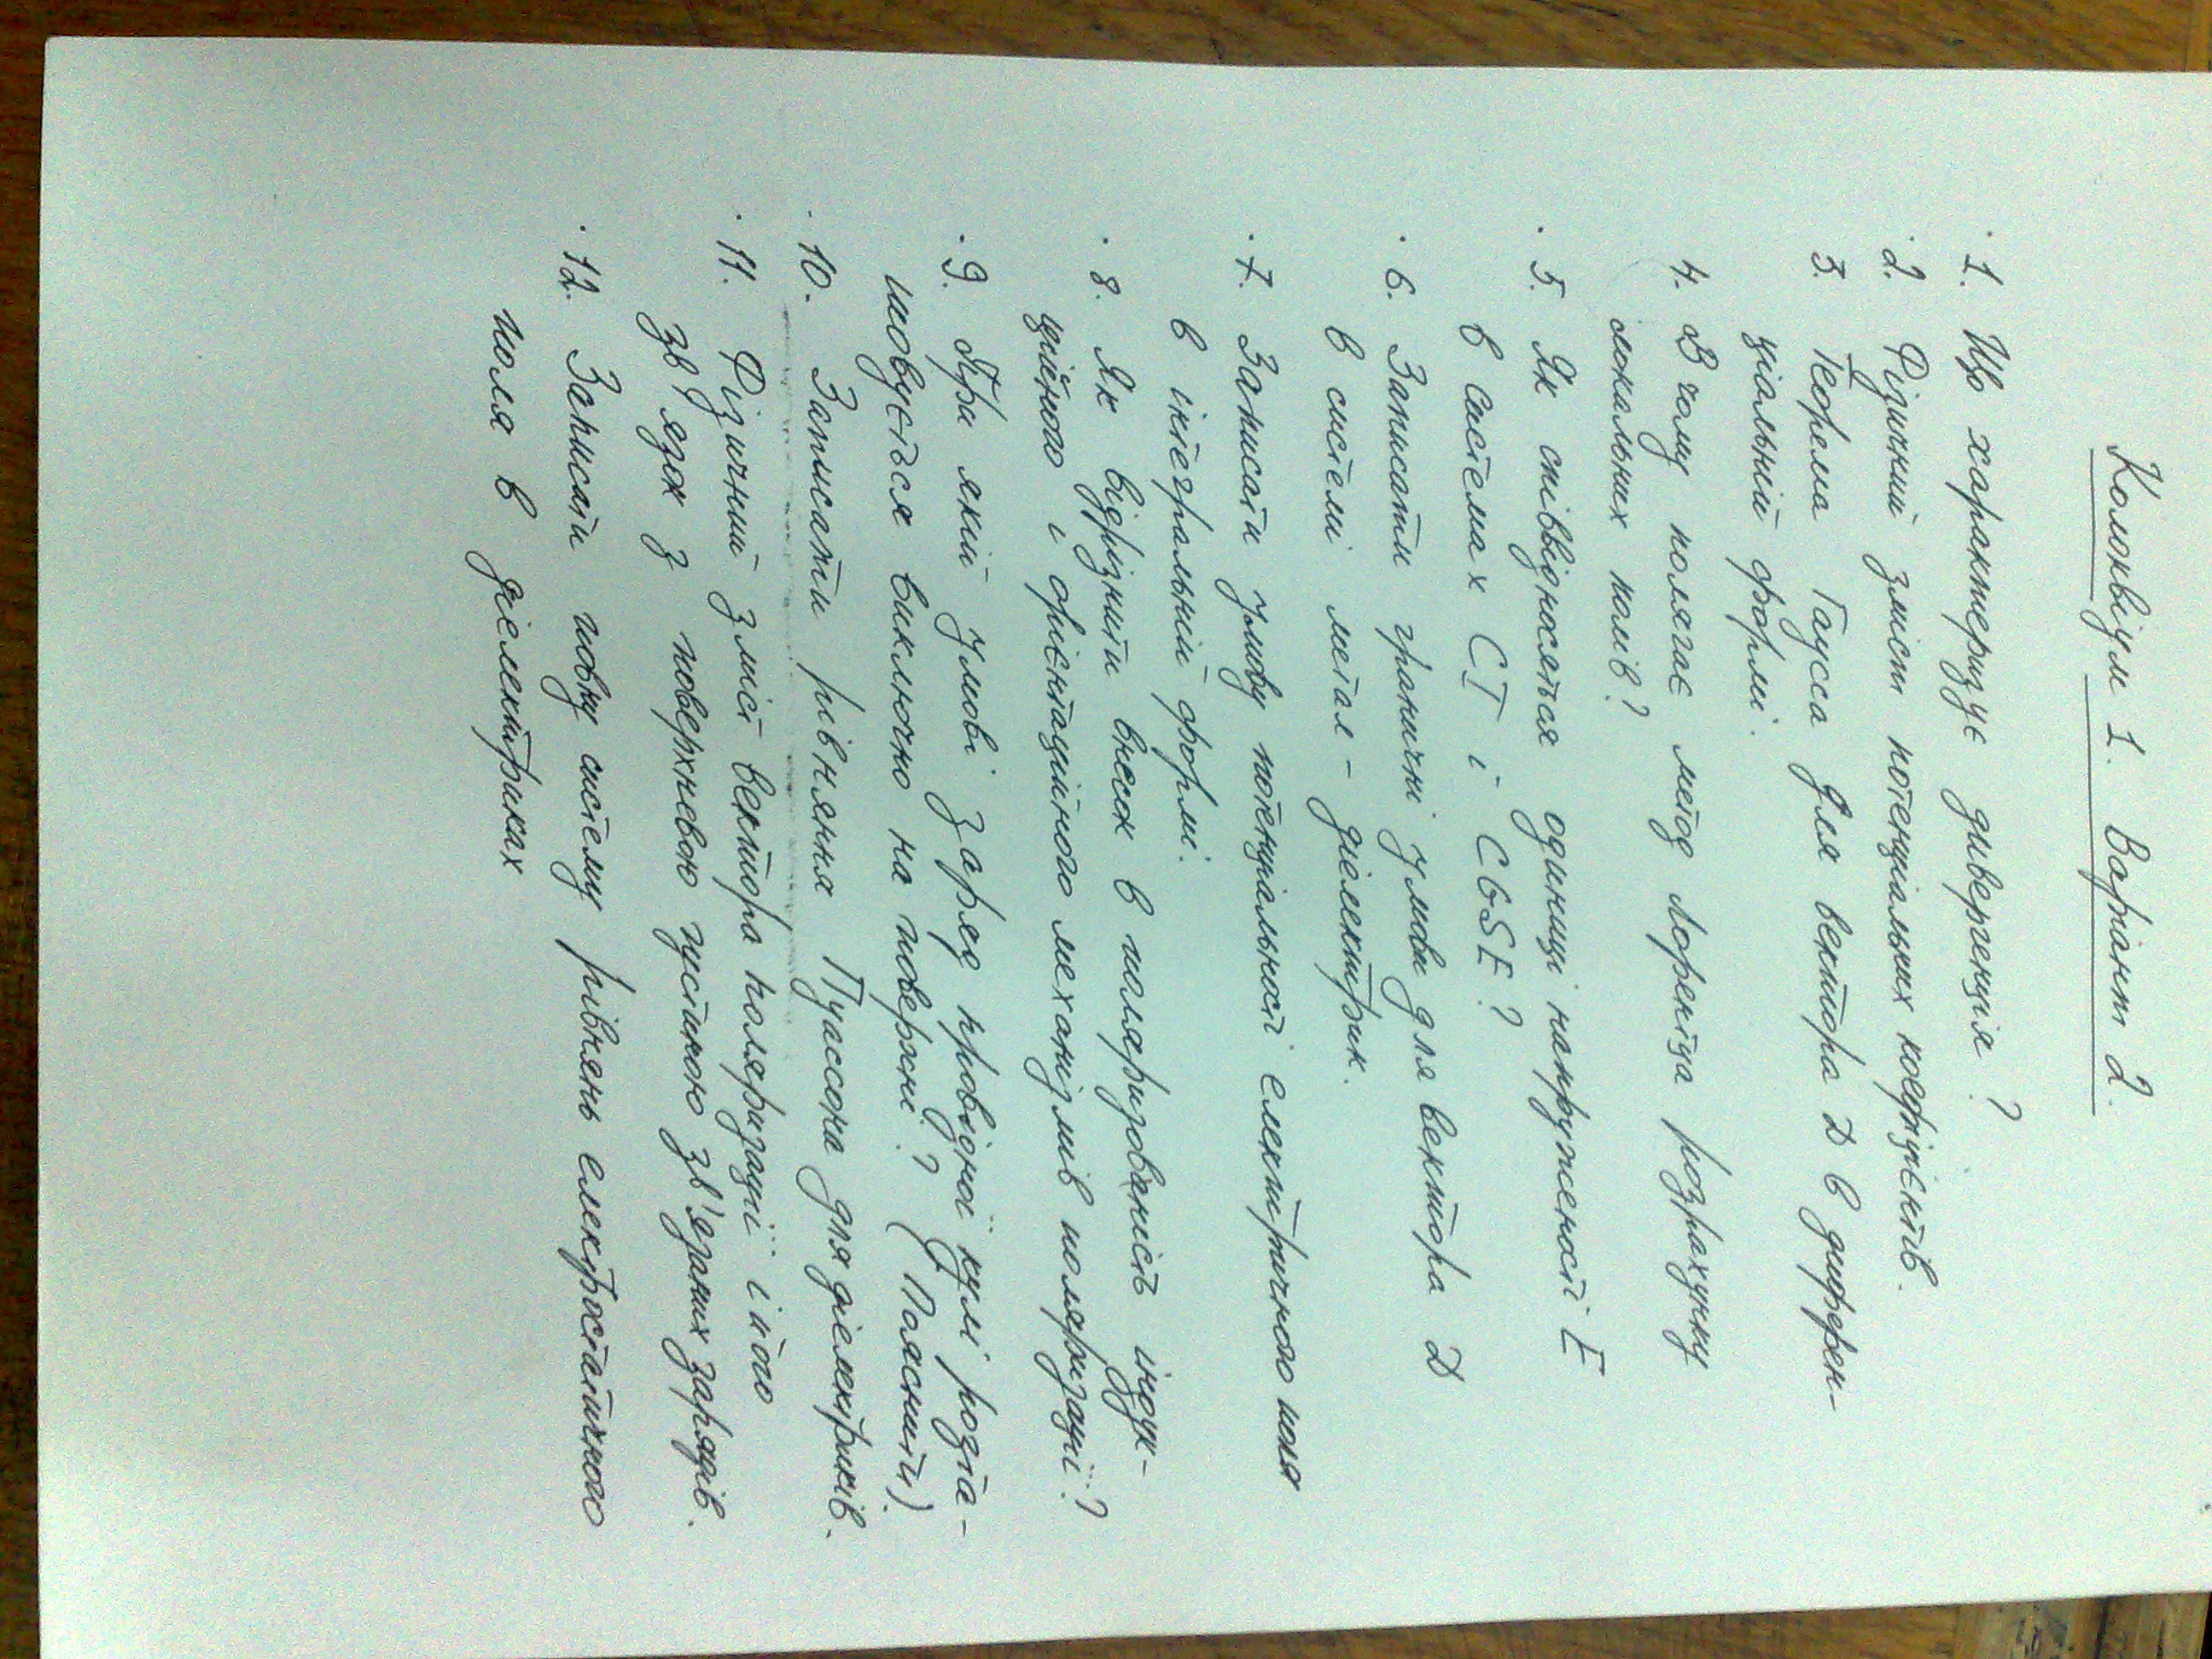 Колоквіум 1. Варіант 2.
1. Що характеризує дивергенція?
2. Фізичний зміст потенціальних коефіцієнтів.
3. Теорема Гаусса для вектора D в диферен-
ціальній формі.
4. В чому полягає метод Лорентца розрахунку
локальних полів?
5. Як співвідносяться одиниці напруженості E
в системах СІ і CGSE?
6. Записати граничні умови для вектора D
в системі метал - діелектрик.
7. Записати умову потенціальності електричного поля
в інтегральній формі.
8. Як відрізнити внесок в поляризованість індук-
ційного і орієнтаційного механізмів поляризації?
9. При якій умові заряд провідної кулі розта-
шовується виключно на поверхні? (Пояснити).
10. Записати рівняння Пуассона для діелектриків.
11. Фізичний зміст вектора поляризації і його
зв'язок з поверхневою густиною зв'язаних зарядів.
12. Записати повну систему рівнянь електростатичного
поля в діелектриках